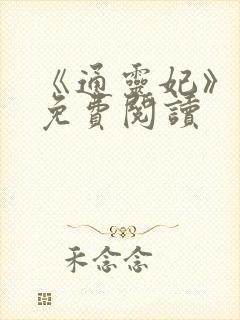 《通靈妃》
免費閱讀
禾念念